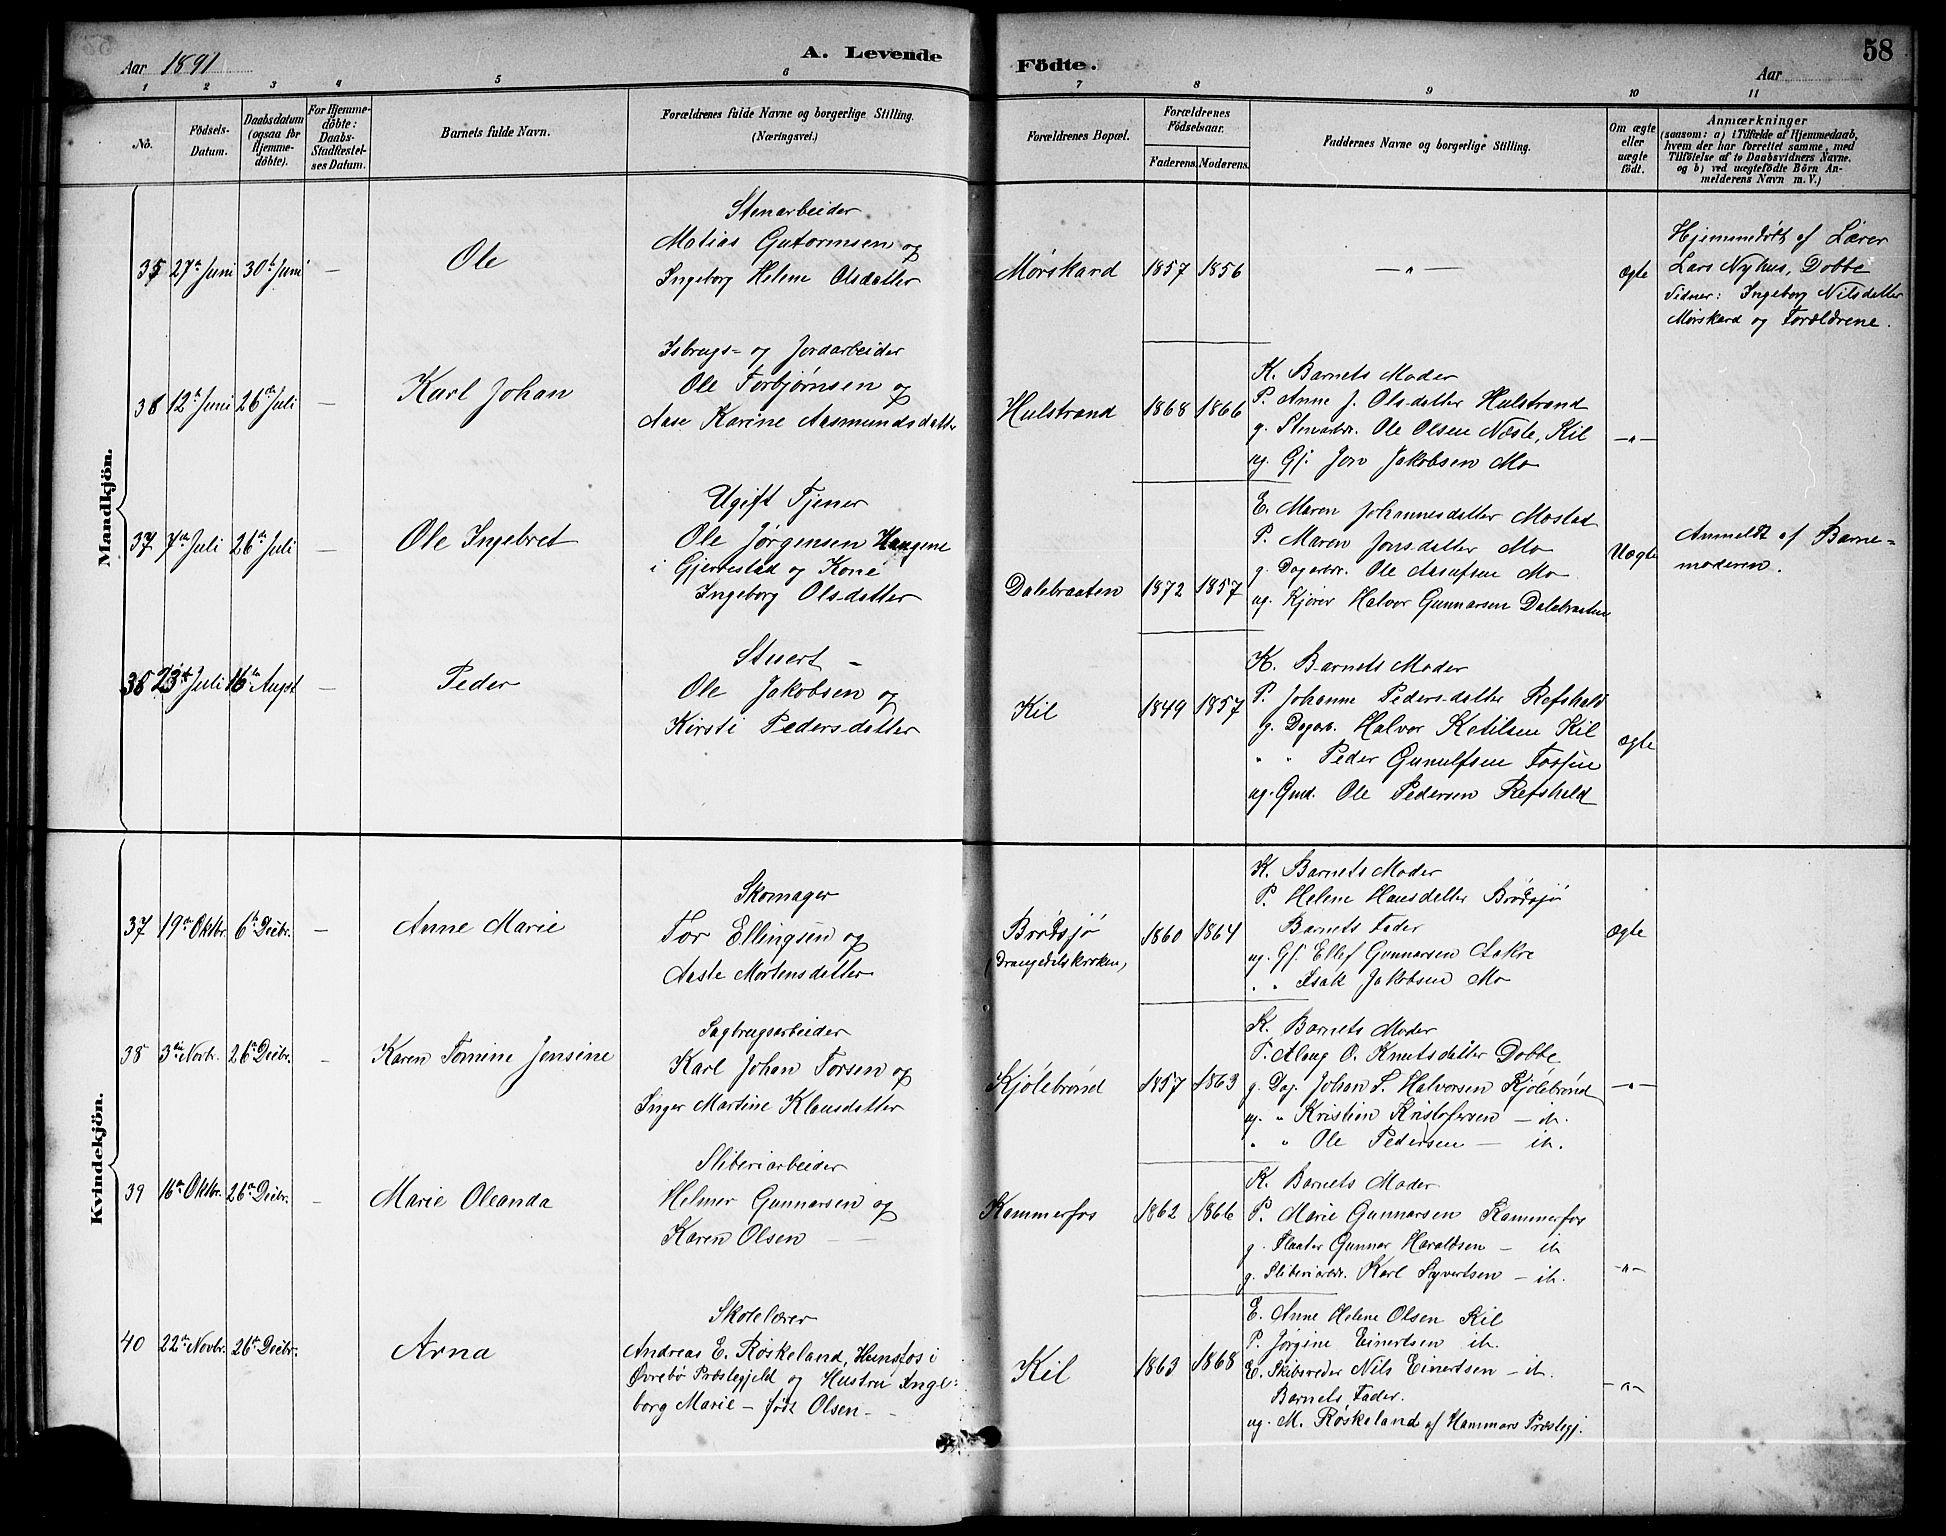 Aar 1891
A. Levende
Födte.
Aar
58
1 2 3 4 5 6 7 8 9 10 11
No.
Födsels-
Datum.
Daabsdatum
(ogsaa för
Hjemme-
döbte).
For Hjemme-
döbte:
Daabs-
Stadfæstel-
ses Datum.
Barnets fulde Navn.
Forældrenes fulde Navne og borgerlige Stilling.
(Næringsvei.)
Forældrenes Bopæl.
Forældrenes
Födselsaar.
Faderens. Moderens.
Faddernes Navne og borgerlige Stilling.
Om ægte
eller
uægte
födt.
Anmærkninger
(saasom: a) i Tilfælde af Hjemmedaab,
hvem der har forrettet samme, med
Tilföielse af to Daabsvidners Navne.
og b) ved uægtefödte Börn An-
melderens Navn m. V.)
Mandkjön.
35 27de Juni 30te Juni —
Ole
Stenarbeider
Matias Gutormsen og
Ingeborg Helene Olsdatter
Mørskard
1857 1856
— " —
ægte
Hjemmedøbt af Lærer
Lars Nyhus, Dobbe
Vidner: Ingeborg Nilsdatter
Mørskard og Forældrene.
36 12te Juni 26de Juli —
Karl Johan
Isbrugs- og Jordarbeider
Ole Torbjørnsen og
Aase Karine Aasmundsdatter
Hulstrand
1868 1866
K. Barnets Moder
P. Anne J. Olsdatter Hulstrand
g. Stenarbr. Ole Olsen Næsle, Kil
ug. Gj. Jon Jakobsen Mo
— " —
37 7de Juli 26de Juli —
Ole Ingebret
Ugift Tjener
Ole Jørgensen Haugene
i Gjerrestad og Kone
Ingeborg Olsdatter
Dalebraaten
1872 1857
E. Maren Johannesdatter Mostad
P. Maren Jonsdatter Mo
g. Dagarbr. Ole Mo
ug. Kjører Halvor Gunnarsen Dalebraaten
Uægte
Anmeldt af Barne-
moderen.
38 23de Juli 16de Augst —
Peder
Stuert —
Ole Jakobsen og
Kirsti Pedersdatter
Kil
1849 1857
K. Barnets Moder
P. Johanne Pedersdatter Refsheld
g. Dagarb. Halvor Ketilsen Kil
" " Peder Gunulfsen
ug. Gmd. Ole Pedersen Refsheld
ægte
Kvindekjön.
37 19de Oktbr. 6te Decbr. —
Anne Marie
Skomager
Tor Ellingsen og
Aaste Mortensdatter
Brødsjø
(Drangedals kirken)
1860 1864
K. Barnets Moder
P. Helene Hansdatter Brødsjø
Barnets Fader
ug. Gj. Ellef Gunnarsen Aakre
" " Isak Jakobsen Mo
ægte
38 3die Novbr. 26de Decbr. —
Karen Tomine Jensine
Sagbrugsarbeider
Karl Johan Torsen og
Inger Martine Klausdatter
Kjølebrønd
1857 1863
K. Barnets Moder
P. Aloug O. Knutsdatter Dobbe
g. Dag. Johan S. Halvorsen Kjølebrønd
ug. " Kristian Kristofersen — ib.
" " Ole Pedersen — ib.
— " —
39 16de Oktbr. 26de Decbr. —
Marie Oleanda
Sliberiarbeider
Helmer Gunnarsen og
Karen Olsen —
Kammerfos
1862 1866
K. Barnets Moder
P. Marie Gunnarsen Kammerfos
g. Flaater Gunnar Haraldsen — ib
g. Sliberiarbr. Karl Syvertsen — ib.
— " —
40 22de Novbr. 26de Decbr.
Arna
Skolelærer
Andreas E. Røskeland, Hunsfos i
Øvrebø Præstegjeld og Hustru Inge-
borg Marie — født Olsen —
Kil
1863 1868
E. Anne Helene Olsen Kil
P. Jørgine Einertsen ib.
E. Skibsreder Nils Einertsen — ib.
Barnets Fader.
ug. M. Røskeland af Hammars Præstegj.
— " —